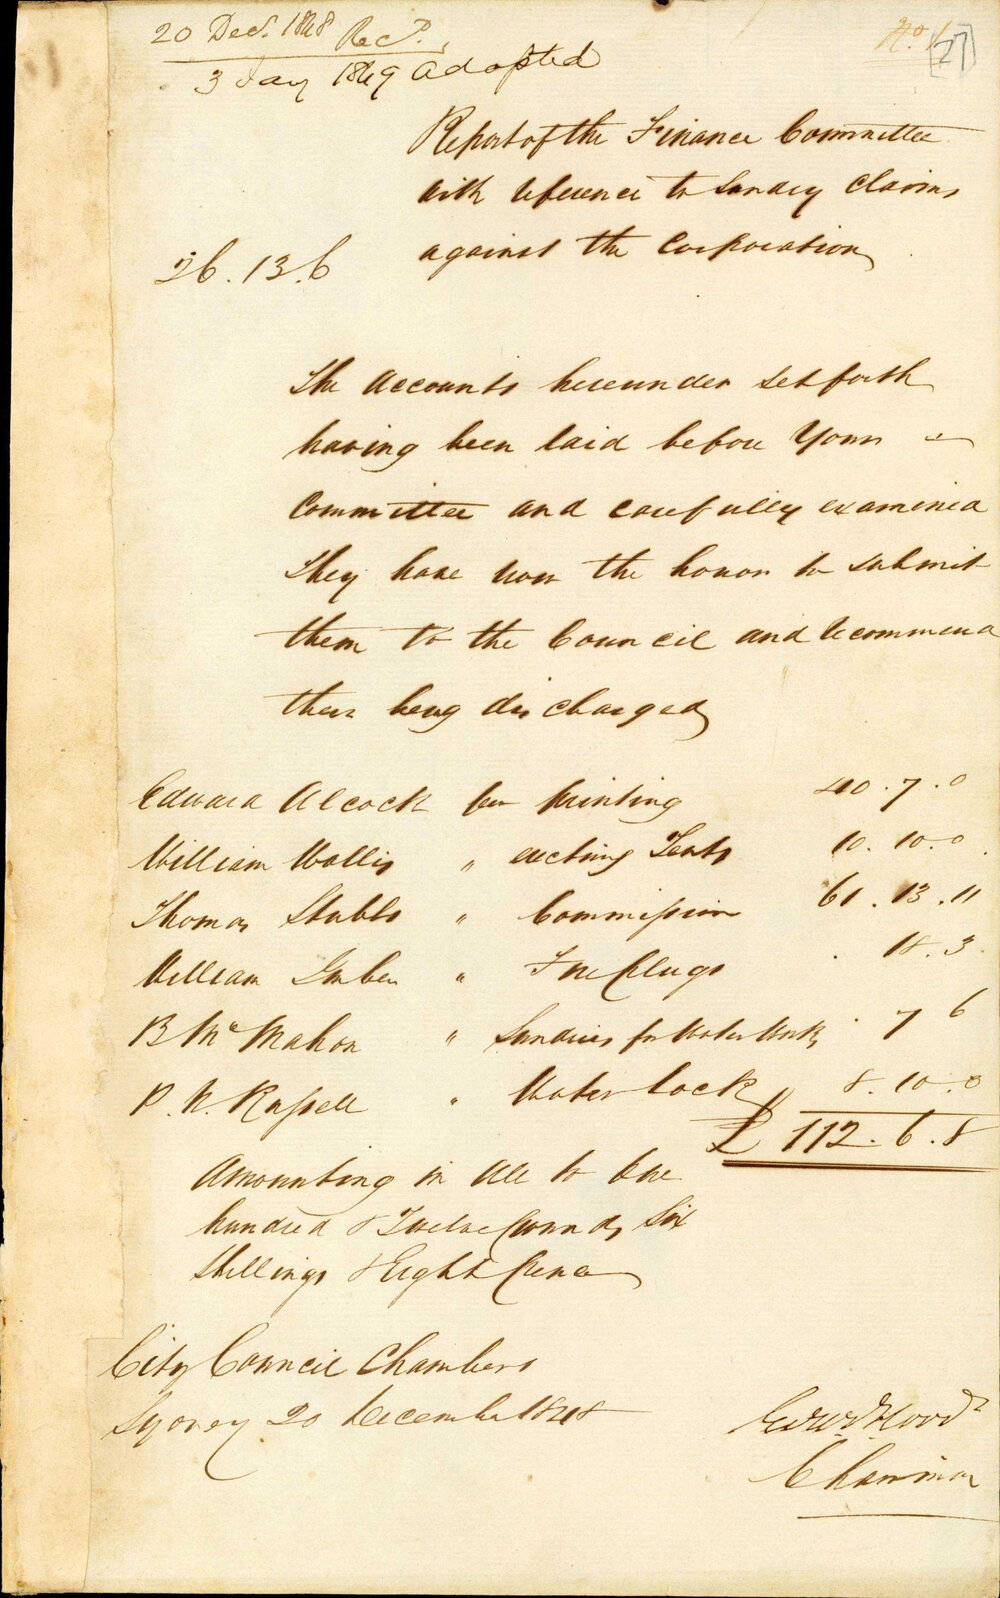 20 Decr. 1848 Recd.
3 Jany 1849 adopted
No. 1
[27]
Report of the Finance Committee
with reference to Sundry Claims
against the Corporation
26.13.6
The Accounts hereunder set forth
having been laid before Your
Committee and carefully examined
they have now the honor to submit
them to the Council and recommend
their being discharged
Edward Alcock for Printing 40.7.0
William Wallis " erecting Tents 10.10.0
Thomas Stubbs " Commission 61.13.11
William " Fire Plugs . 18.3
B McMahon " Sundries for Water Works . 7 6
P. N. Russell " Water Cock 8.10.0
£ 112.6.8
Amounting in all to One
hundred & Twelve Pounds Six
Shillings & Eight Pence
City Council Chambers
Sydney 20 December 1848
Edwd Flood
Chairman